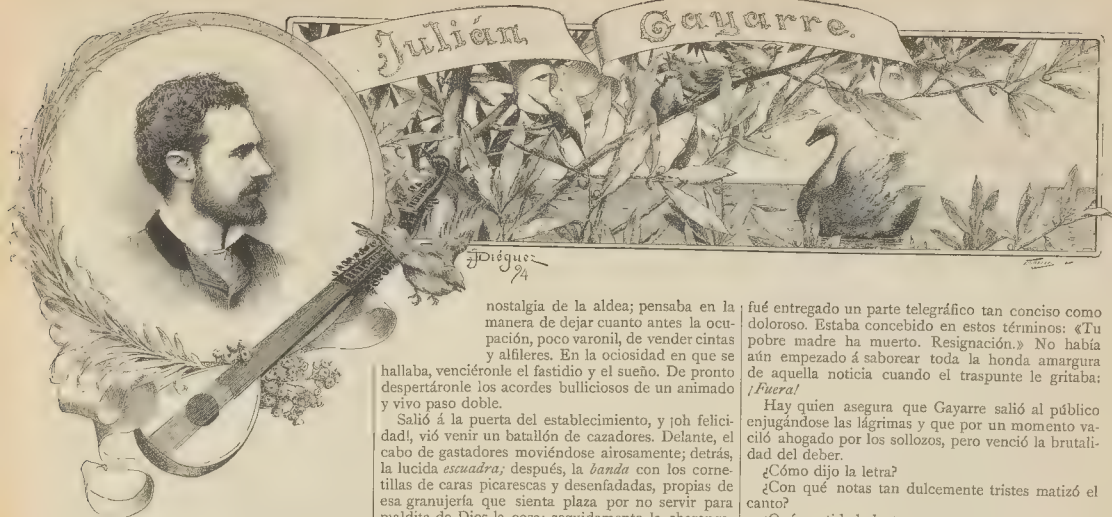 Julián Gayarre.
JDiéguez
94
nostalgia de la aldea; pensaba en la
manera de dejar cuanto antes la ocu-
pación, poco varonil, de vender cintas
y alfileres. En la ociosidad en que se
hallaba, venciéronle el fastidio y el sueño. De pronto
despertáronle los acordes bulliciosos de un animado
y vivo paso doble.
Salió á la puerta del establecimiento, y ¡oh felici-
dad!, vió venir un batallón de cazadores. Delante, el
cabo de gastadores moviéndose airosamente; detrás,
la lucida escuadra; después, la banda con los corne-
tillas de caras picarescas y desenfadadas, propias de
esa granujería que sienta plaza por no servir para
fué entregado un parte telegráfico tan conciso como
doloroso. Estaba concebido en estos términos: «Tu
pobre madre ha muerto. Resignación.» No había
aún empezado á saborear toda la honda amargura
de aquella noticia cuando el traspunte le gritaba:
¡Fuera!
Hay quien asegura que Gayarre salió al público
enjugándose las lágrimas y que por un momento va-
ciló ahogado por los sollozos, pero venció la brutali-
dad del deber.
¿Cómo dijo la letra?
¿Con qué notas tan dulcemente tristes matizó el
canto?